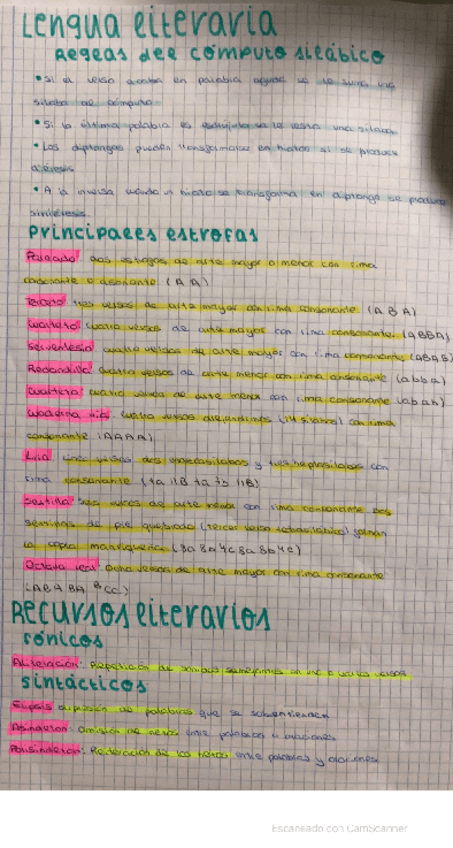 Lengua literaria
Reglas del cómputo silábico
• Si el verso acaba en palabra aguda se le suma una
sílaba al cómputo
• Si la última palabra es esdrújula se le resta una sílaba
• Los diptongos pueden transformarse en hiatos si se produce
diéresis
• A la inversa cuando un hiato se transforma en diptongo se produce
sinéresis.
Principales estrofas
Pareado: dos versos de arte mayor o menor con rima
consonante o asonante (A A)
Terceto: tres versos de arte mayor con rima consonante (A B A)
Cuarteto: cuatro versos de arte mayor con rima consonante (ABBA)
Serventesio: cuatro versos de arte mayor con rima consonante (ABAB)
Redondilla: cuatro versos de arte menor con rima consonante (abba)
Cuarteta: cuatro versos de arte menor con rima consonante (abab)
Cuaderna vía: cuatro versos alejandrinos (14 sílabas) con rima
consonante (AAAA)
Lira: cinco versos dos endecasílabos y tres heptasílabos con
rima consonante (7a 11B 7a 7b 11B)
Sextilla: seis versos de arte menor con rima consonante. Dos
de pie quebrado (tercer verso tetrasílabo) forman
la copla manriqueña (8a 8b 4c 8a 8b 4c)
Octava real: Ocho versos de arte mayor con rima consonante
(ABABABCC)
Recursos literarios
Fónicos
Aliteración: Repetición de sonidos semejantes en uno o varios versos
Sintácticos
Elipsis: supresión de palabras que se sobreentienden
Asíndeton: omisión de nexos entre palabras u oraciones
Polisíndeton: Reiteración de los nexos entre palabras y oraciones
Escaneado con CamScanner